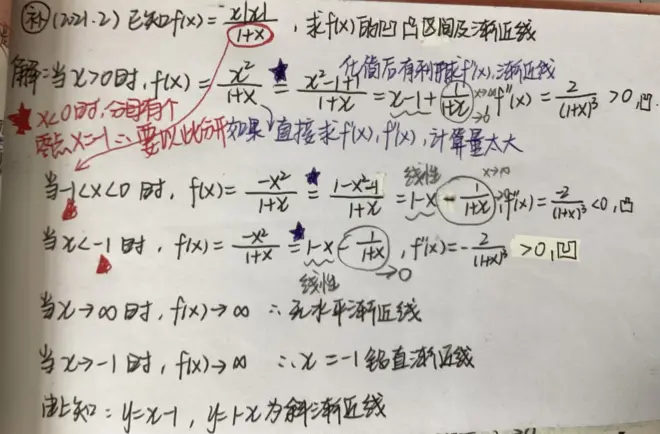 补(2021.2) 已知f(x)=x|x|/(1+x), 求f(x)的凹凸区间及渐近线
化简后有利于求f''(x),渐近线
解:当x>0时,f(x)=x²/(1+x)=(x²-1+1)/(1+x)=x-1+1/(1+x) f''(x)=2/(1+x)³>0,凹.
x→∞ →0
★x<0时,分母有个
零点x=-1∴要以此分开 如果直接求f'(x),f''(x),计算量太大
线性 x→∞
当-1<x<0时, f(x)=-x²/(1+x)=(1-x²-1)/(1+x)=1-x-1/(1+x), f''(x)=-2/(1+x)³<0,凸
当x<-1时, f(x)=-x²/(1+x)=1-x-1/(1+x), f''(x)=-2/(1+x)³>0,凹
线性 →0
当x→∞时, f(x)→∞ ∴无水平渐近线
当x→-1时, f(x)→∞ ∴x=-1铅直渐近线
由上知: y=x-1, y=1-x为斜渐近线